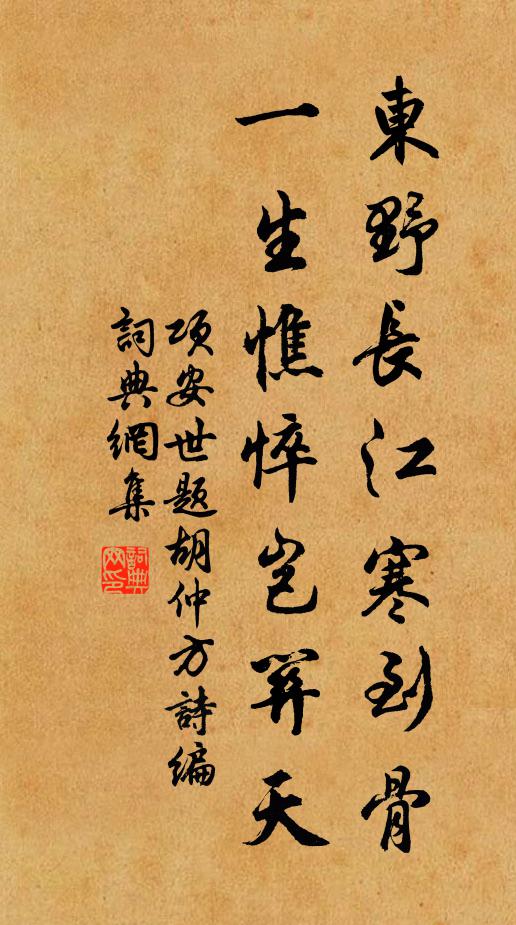 東野長江寒到骨
一生憔悴豈關天
项安世题胡仲方詩编
詞典網集
詞典
网印